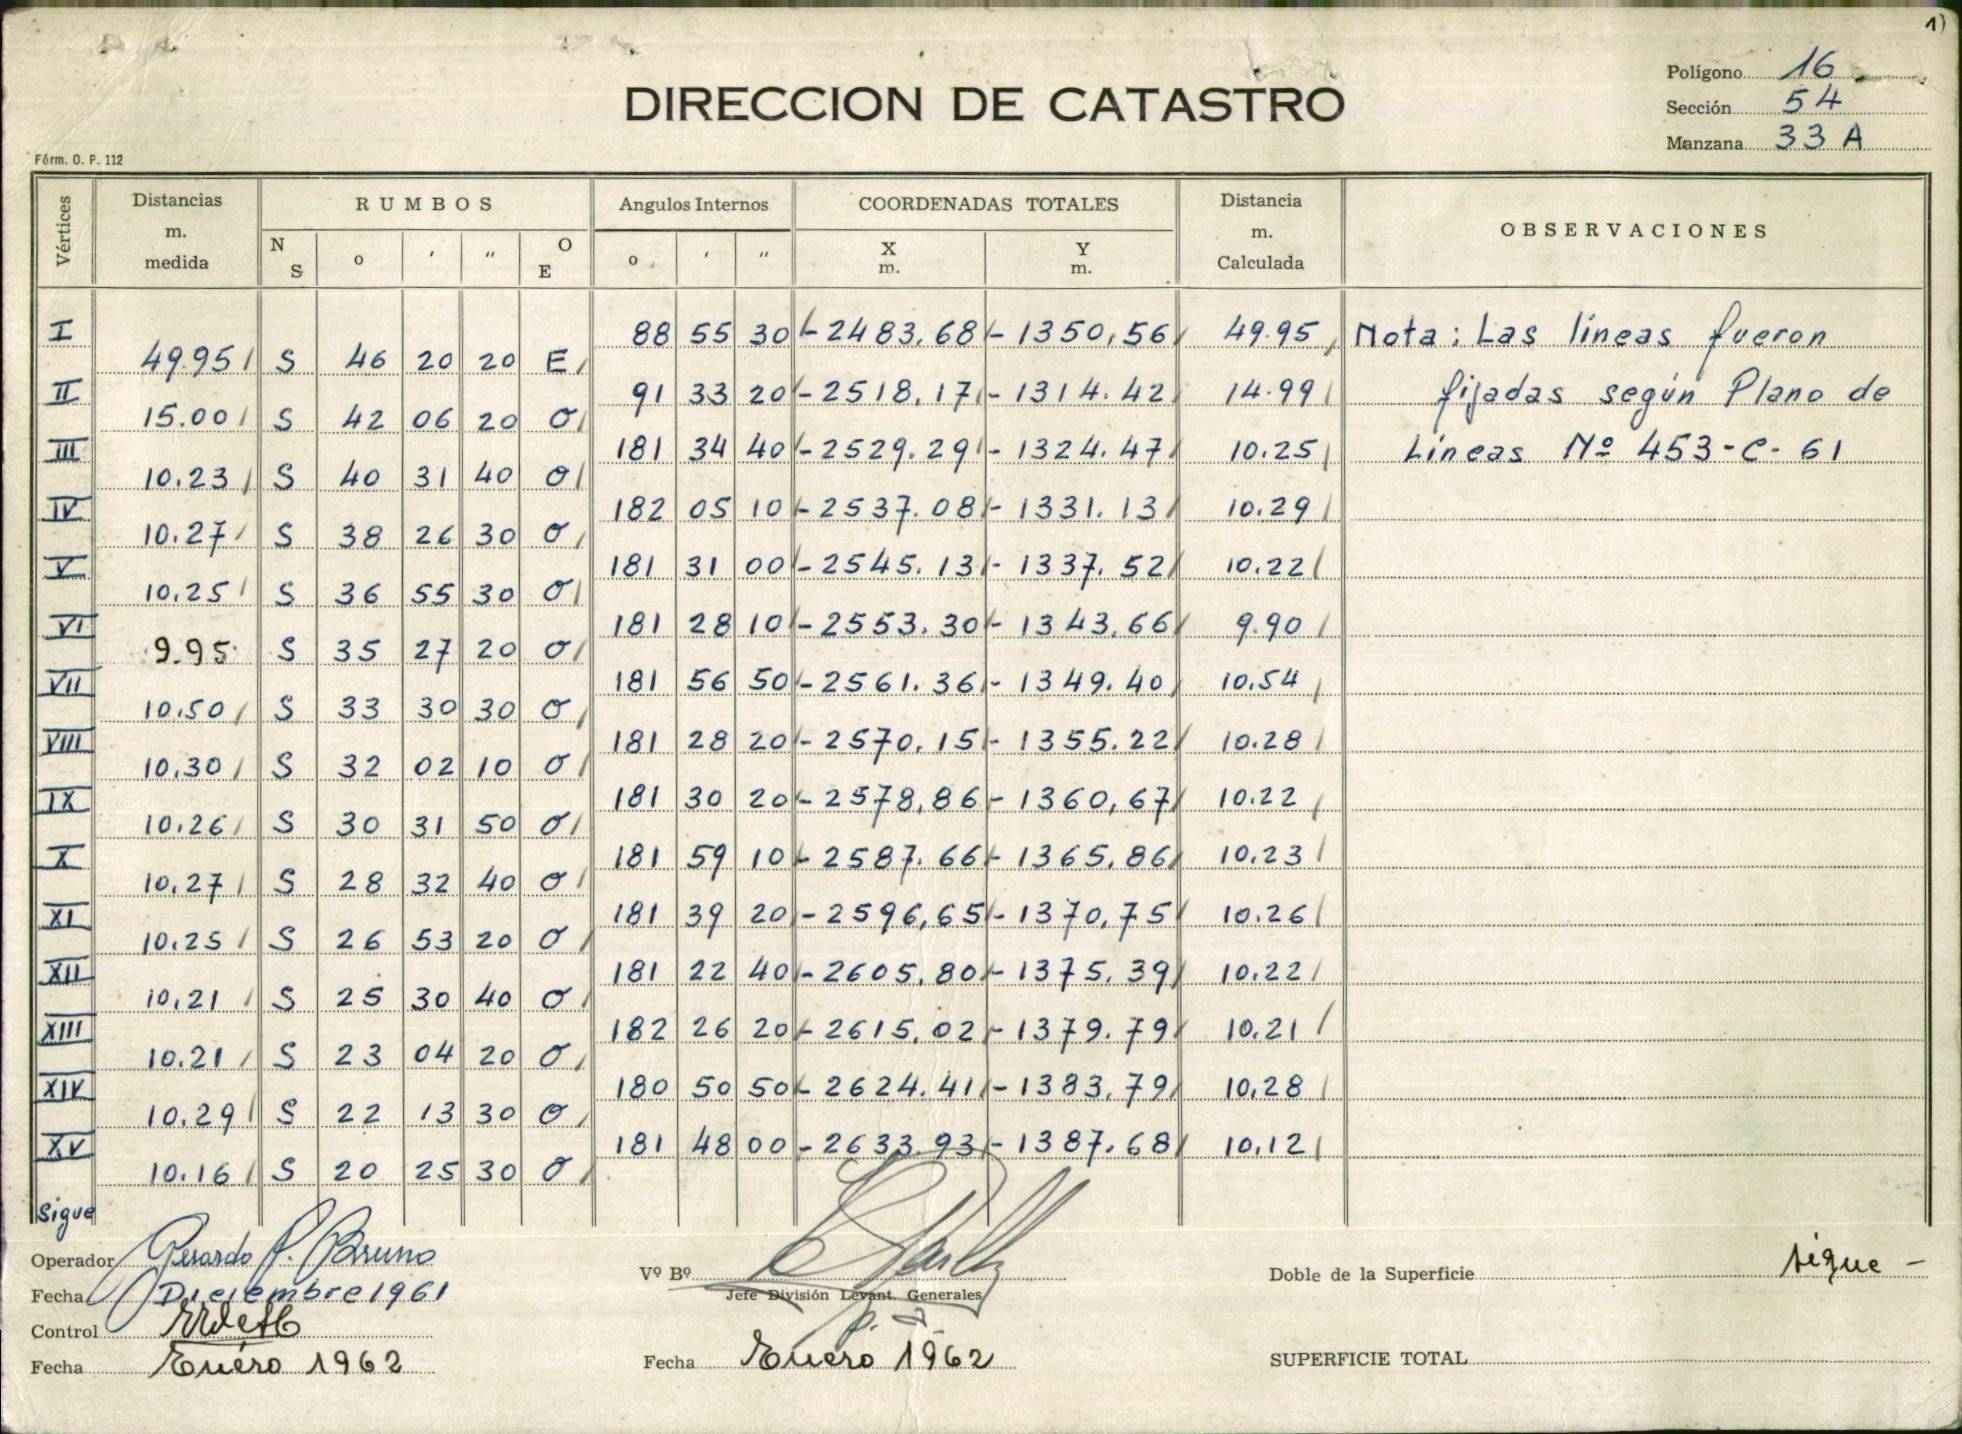 1)
Polígono 16
DIRECCION DE CATASTRO
Sección 54
Manzana 33 A
Fórm. O. P. 112
Vértices Distancias m. medida RUMBOS Angulos Internos COORDENADAS TOTALES Distancia m. Calculada OBSERVACIONES
N S o ' " O E o ' " X m. Y m.
I 88 55 30 -2483,68 -1350,56 49.95 Nota: Las líneas fueron
49.95 S 46 20 20 E
II 91 33 20 -2518,17 -1314.42 14.99 fijadas según Plano de
15.00 S 42 06 20 O
III 181 34 40 -2529.29 -1324.47 10.25 Líneas Nº 453-C-61
10.23 S 40 31 40 O
IV 182 05 10 -2537.08 -1331.13 10.29
10.27 S 38 26 30 O
V 181 31 00 -2545.13 -1337.52 10.22
10.25 S 36 55 30 O
VI 181 28 10 -2553.30 -1343,66 9.90
9.95 S 35 27 20 O
VII 181 56 50 -2561.36 -1349.40 10.54
10.50 S 33 30 30 O
VIII 181 28 20 -2570,15 -1355.22 10.28
10.30 S 32 02 10 O
IX 181 30 20 -2578,86 -1360,67 10.22
10.26 S 30 31 50 O
X 181 59 10 -2587.66 -1365,86 10.23
10.27 S 28 32 40 O
XI 181 39 20 -2596,65 -1370,75 10.26
10.25 S 26 53 20 O
XII 181 22 40 -2605,80 -1375,39 10.22
10.21 S 25 30 40 O
XIII 182 26 20 -2615,02 -1379.79 10.21
10.21 S 23 04 20 O
XIV 180 50 50 -2624.41 -1383,79 10.28
10.29 S 22 13 30 O
XV 181 48 00 -2633.93 -1387.68 10.12
10.16 S 20 25 30 O
Sigue
Operador Gerardo P. Bruno
Vº Bº
Doble de la Superficie sigue -
Fecha Diciembre 1961
Jefe División Levant. Generales
Control
Fecha Enero 1962
Fecha Enero 1962
SUPERFICIE TOTAL